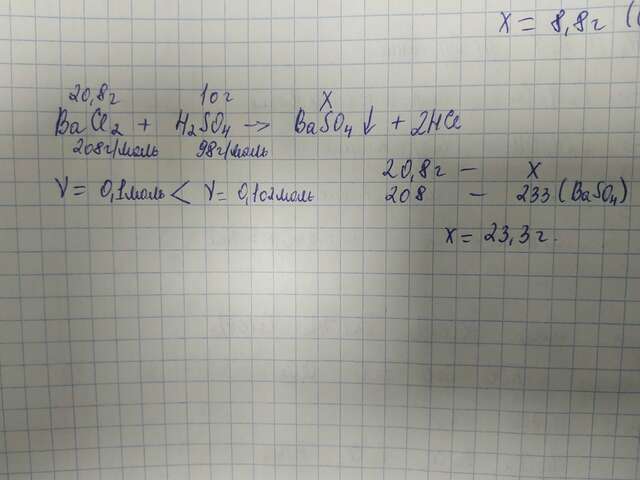 X = 8,8г (
20,8г 10г X
BaCl2 + H2SO4 → BaSO4↓ + 2HCl
208г/моль 98г/моль
20,8г – X
ν = 0,1моль < ν = 0,102моль 208 – 233 (BaSO4)
x = 23,3г.